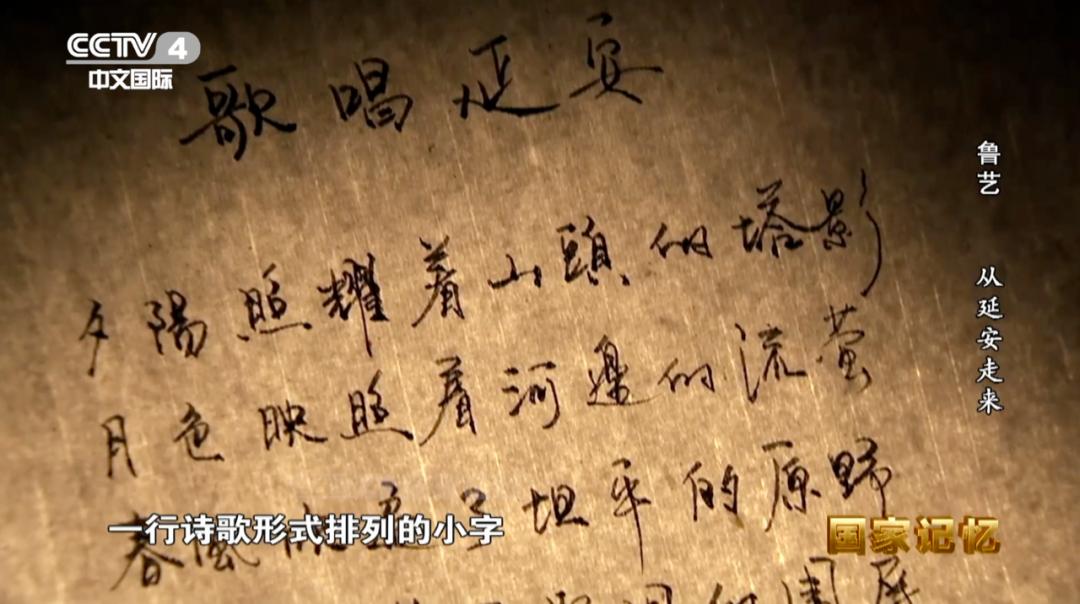 CCTV 4
中文国际
歌唱延安
夕陽照耀着山頭的塔影
月色映照着河邊的流萤
春風 了坦平的原野
的圍屏
一行诗歌形式排列的小字
鲁艺 从延安走来
国家记忆